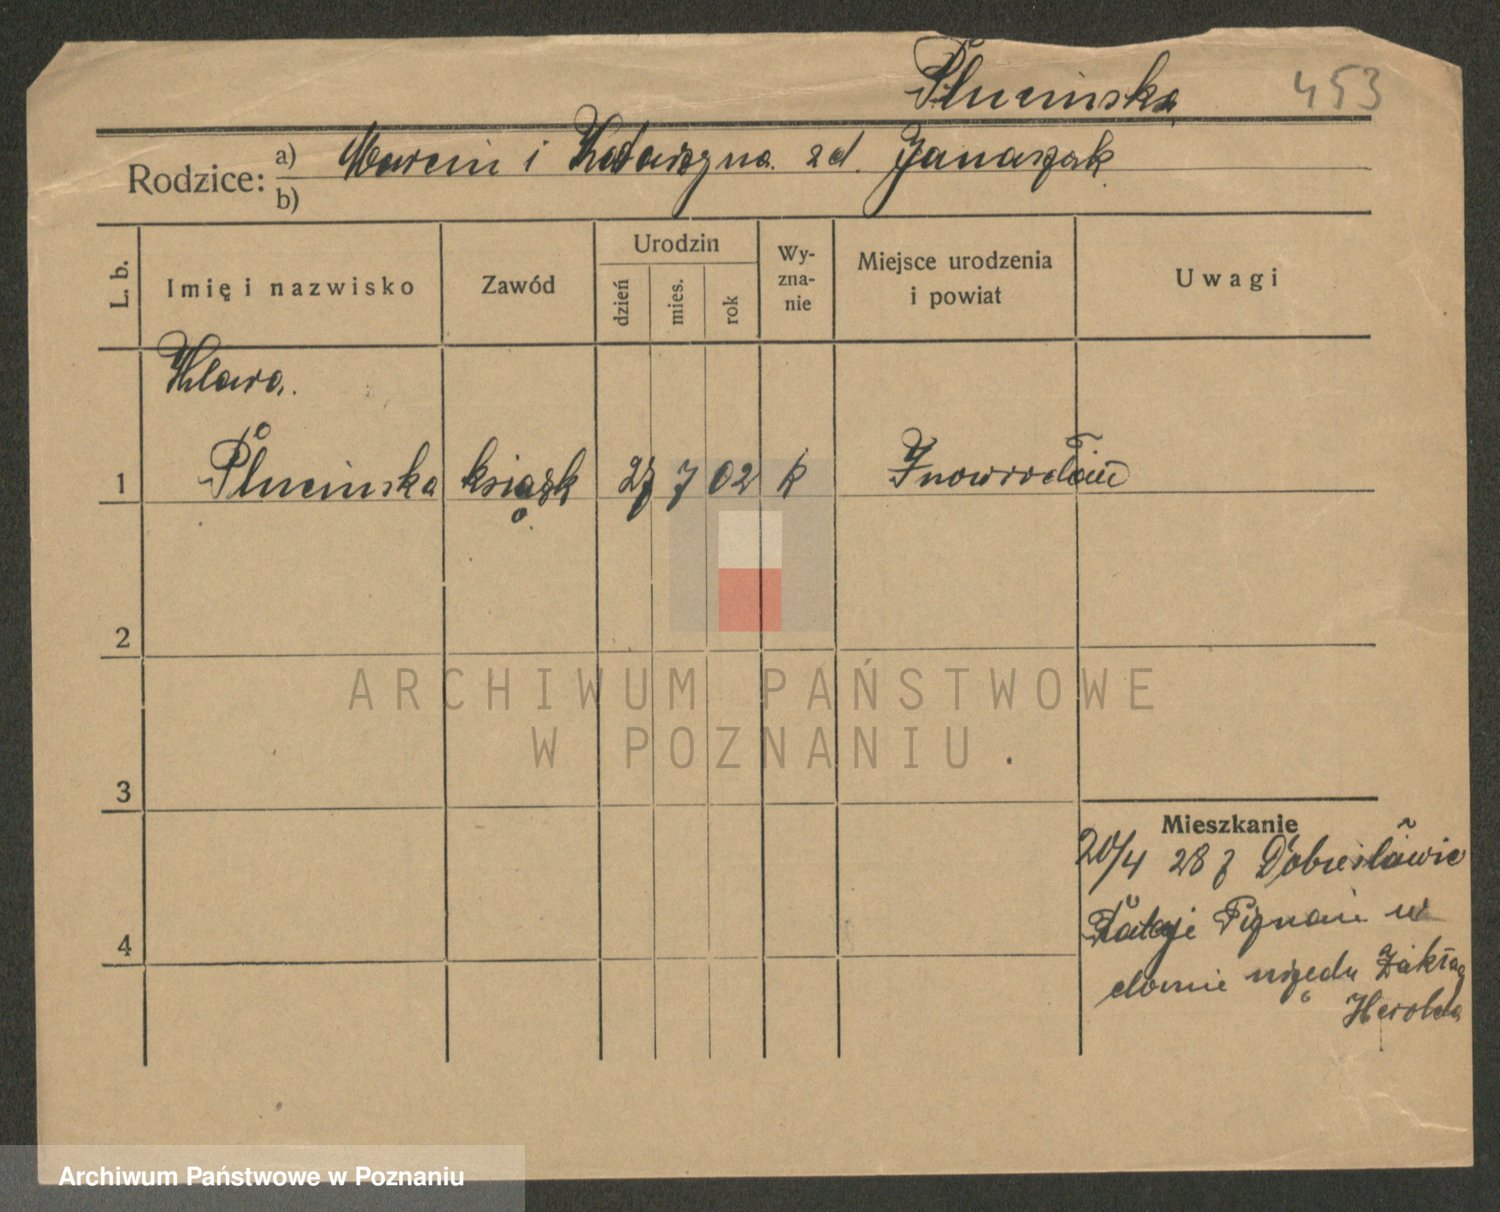 Płucińska 453
Rodzice: a) Marcin i Katarzyna zd. Janaszak
b)
L. b. Imię i nazwisko Zawód Urodzin dzień mies. rok Wy-zna-nie Miejsce urodzenia i powiat Uwagi
Klara
1 Płucińska książk 27 7 02 k Inowrocław
2
ARCHIWUM PAŃSTWOWE
W POZNANIU
3
Mieszkanie
20/4 28 z
4 Rataje w
domie Zakład
Herolda
Archiwum Państwowe w Poznaniu